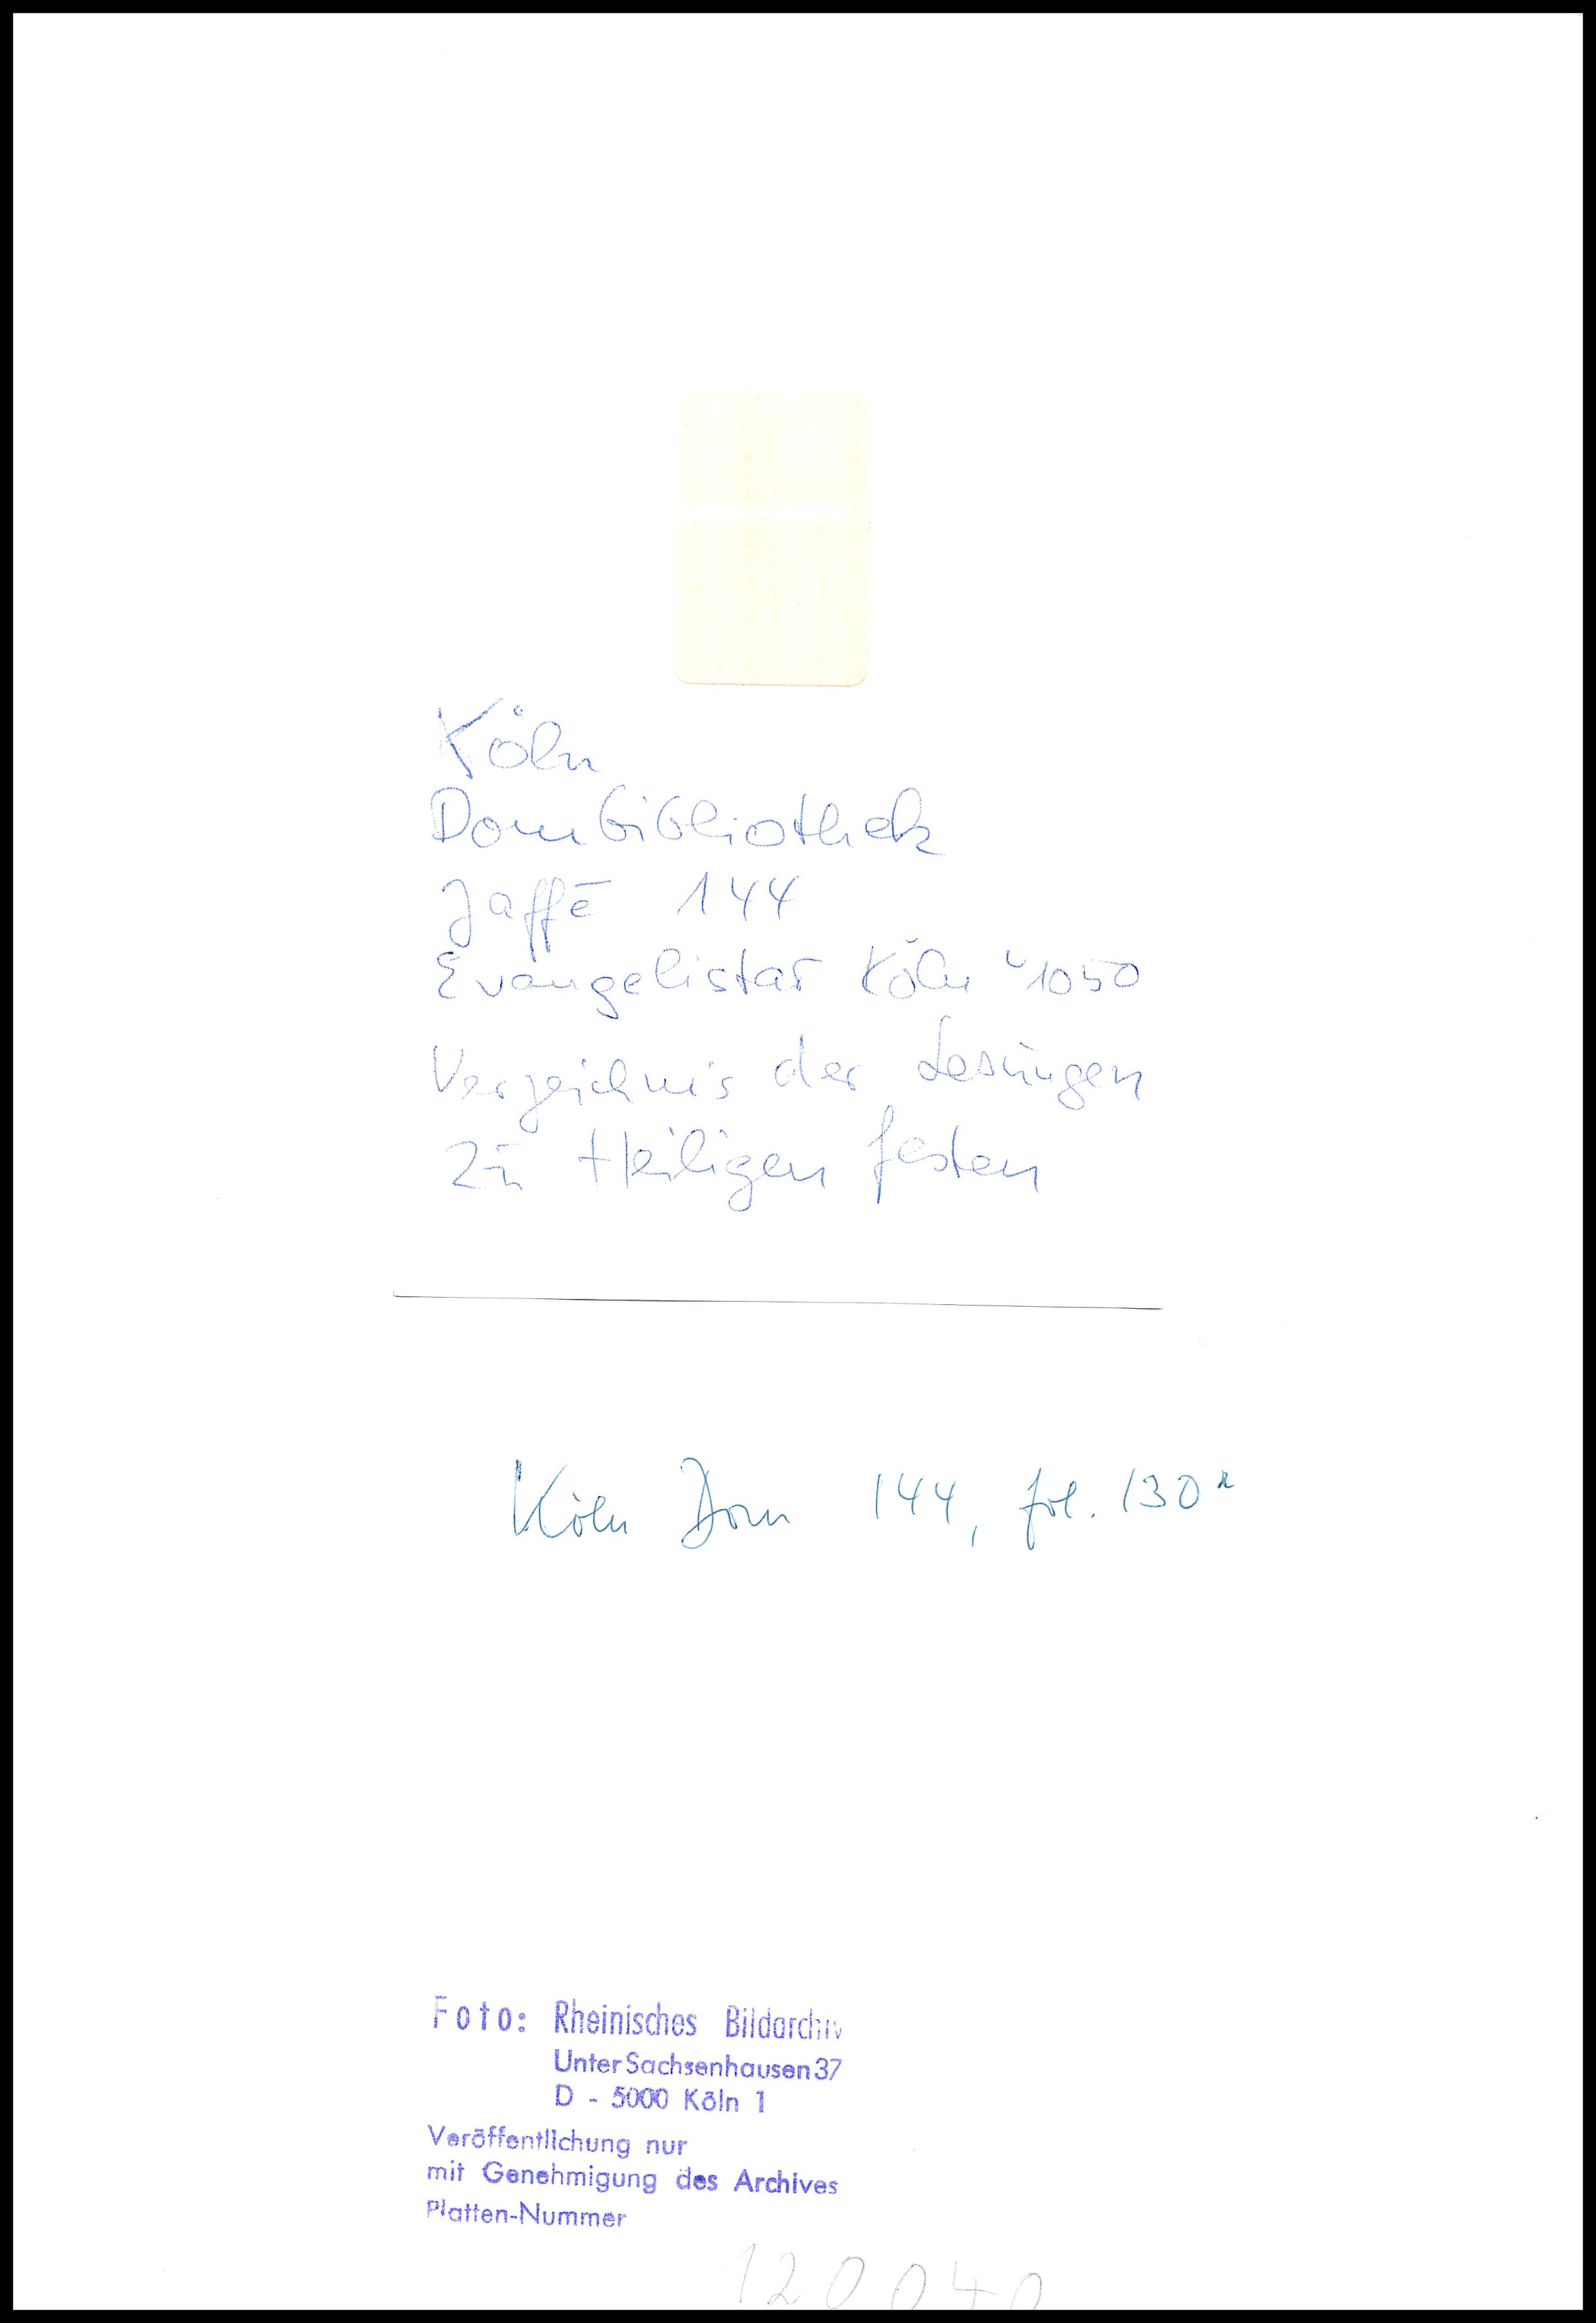 Köln
Dombibliothek
Jaffé 144
Evangelistar Köln 1050
Verzeichnis der Lesungen
zu Heiligen festen
Köln Dom 144, fol. 130r
Foto: Rheinisches Bildarchiv
Unter Sachsenhausen 37
D - 5000 Köln 1
Veröffentlichung nur
mit Genehmigung des Archives
Platten-Nummer